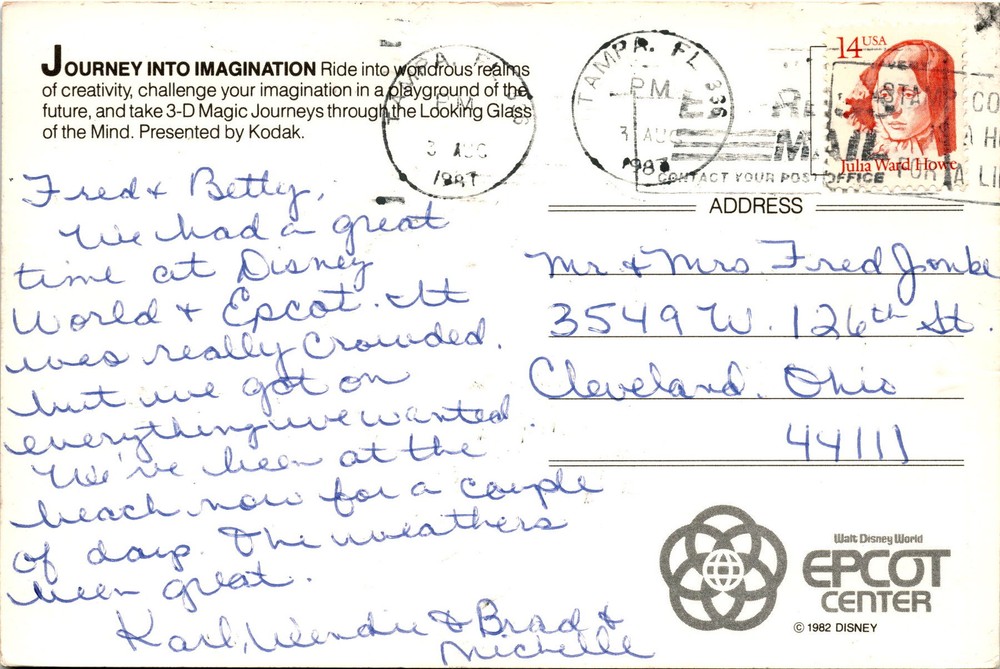 JOURNEY INTO IMAGINATION Ride into wondrous realms
of creativity, challenge your imagination in a playground of the
future, and take 3-D Magic Journeys through the Looking Glass
of the Mind. Presented by Kodak.
Fred & Betty,
We had a great
time at Disney
World & Epcot. It
was really crowded.
but we got on
everything we wanted.
We've been at the
beach now for a couple
of days. The weathers
been great.
Karl, Wendie & Brad &
Michelle
TAMPA, FL
P.M.
3 AUG
1987
TAMPA, FL 336
P.M.
3 AUG
1987
MAIL
CONTACT YOUR POST OFFICE
14 USA
Julia Ward Howe
ADDRESS
Mr. & Mrs Fred Jonke
3549 W. 126th St.
Cleveland, Ohio
44111
Walt Disney World
EPCOT
CENTER
© 1982 DISNEY